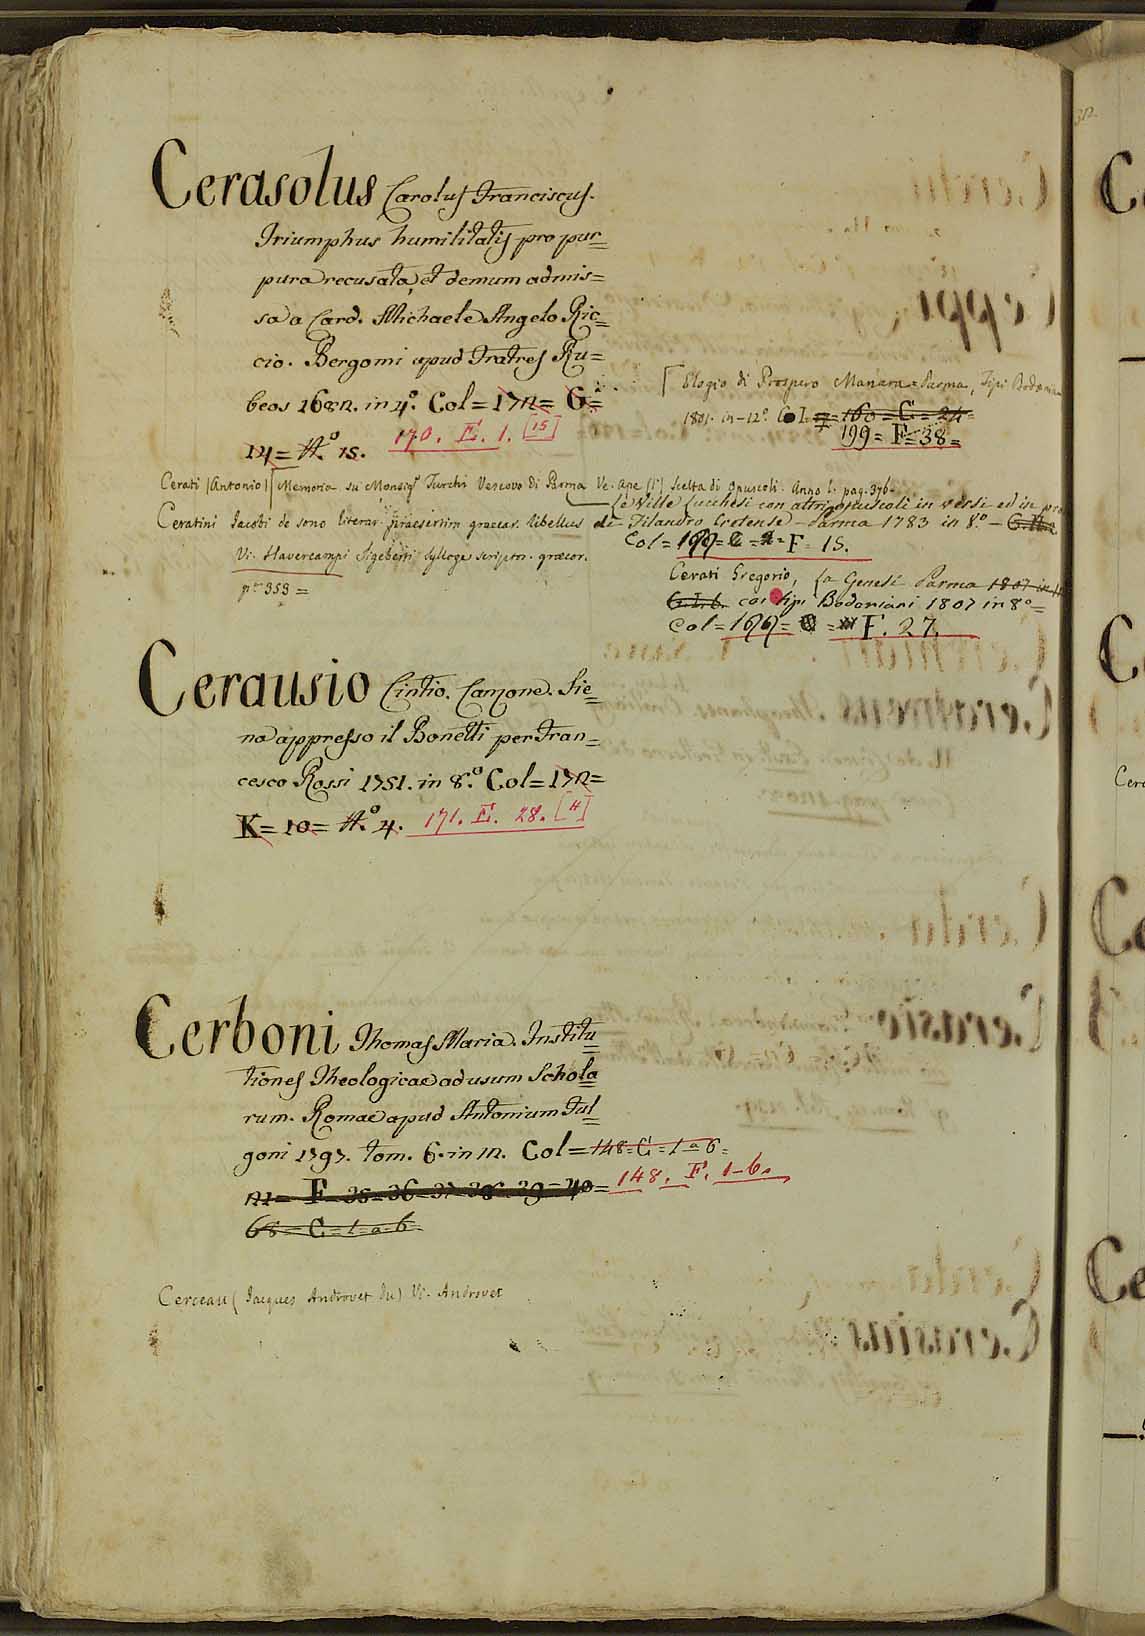 Cerasolus Carolus Franciscus.
Triumphus humilitatis pro pur=
pura recusata, et demum admis=
sa a Card. Michaele Angelo Ric=
cio. Bergomi apud Fratres Ru=
beos 1682. in 4.º Col = 172 = G =
14 = N.º 15. 170. E. 1. [15]
[Elogio di Prospero Manara = Parma, Tipi Bodonia
1801. in-12º Col = 160 = C = 24 =
199 = F = 38 =
Cerati (Antonio) [Memoria su Monsigr Turchi Vescovo di Parma Ve. Ape (l') Scelta di Opuscoli. Anno I. pag. 376.
Le Ville Lucchesi con altri opuscoli in versi ed in pro
di Filandro Cretense - Parma 1783 in 8.º -
Col = 199 = F = 15.
Ceratini Jacobi de sono literar. praesertim graecar. libellus
Vi. Havercampi Sigeberti Sylloge scriptor. graecor.
pag 353 =
Cerati Gregorio, la Genesi Parma 1807 in
G.I.6. coi tipi Bodoniani 1807 in 8º =
Col = 199 = F. 27.
Cerausio Cintio. Canzone. Sie=
na appresso il Bonetti per Fran=
cesco Rossi 1751. in 8.º Col = 172 =
K = 10 = N.º 4. 171. E. 28. [4]
Cerboni Thomas Maria. Institu=
tiones Theologicae ad usum Schola=
rum. Romae apud Antonium Ful=
goni 1797. tom. 6. in 12. Col = 148 = C = 1 a 6 =
121 = F = 35 = 36 = 37 = 38 = 39 = 40 = 148. F. 1-6.
68 = C = 1 = a = 6
Cerceau (Jacques Androvet du) Vi. Androvet